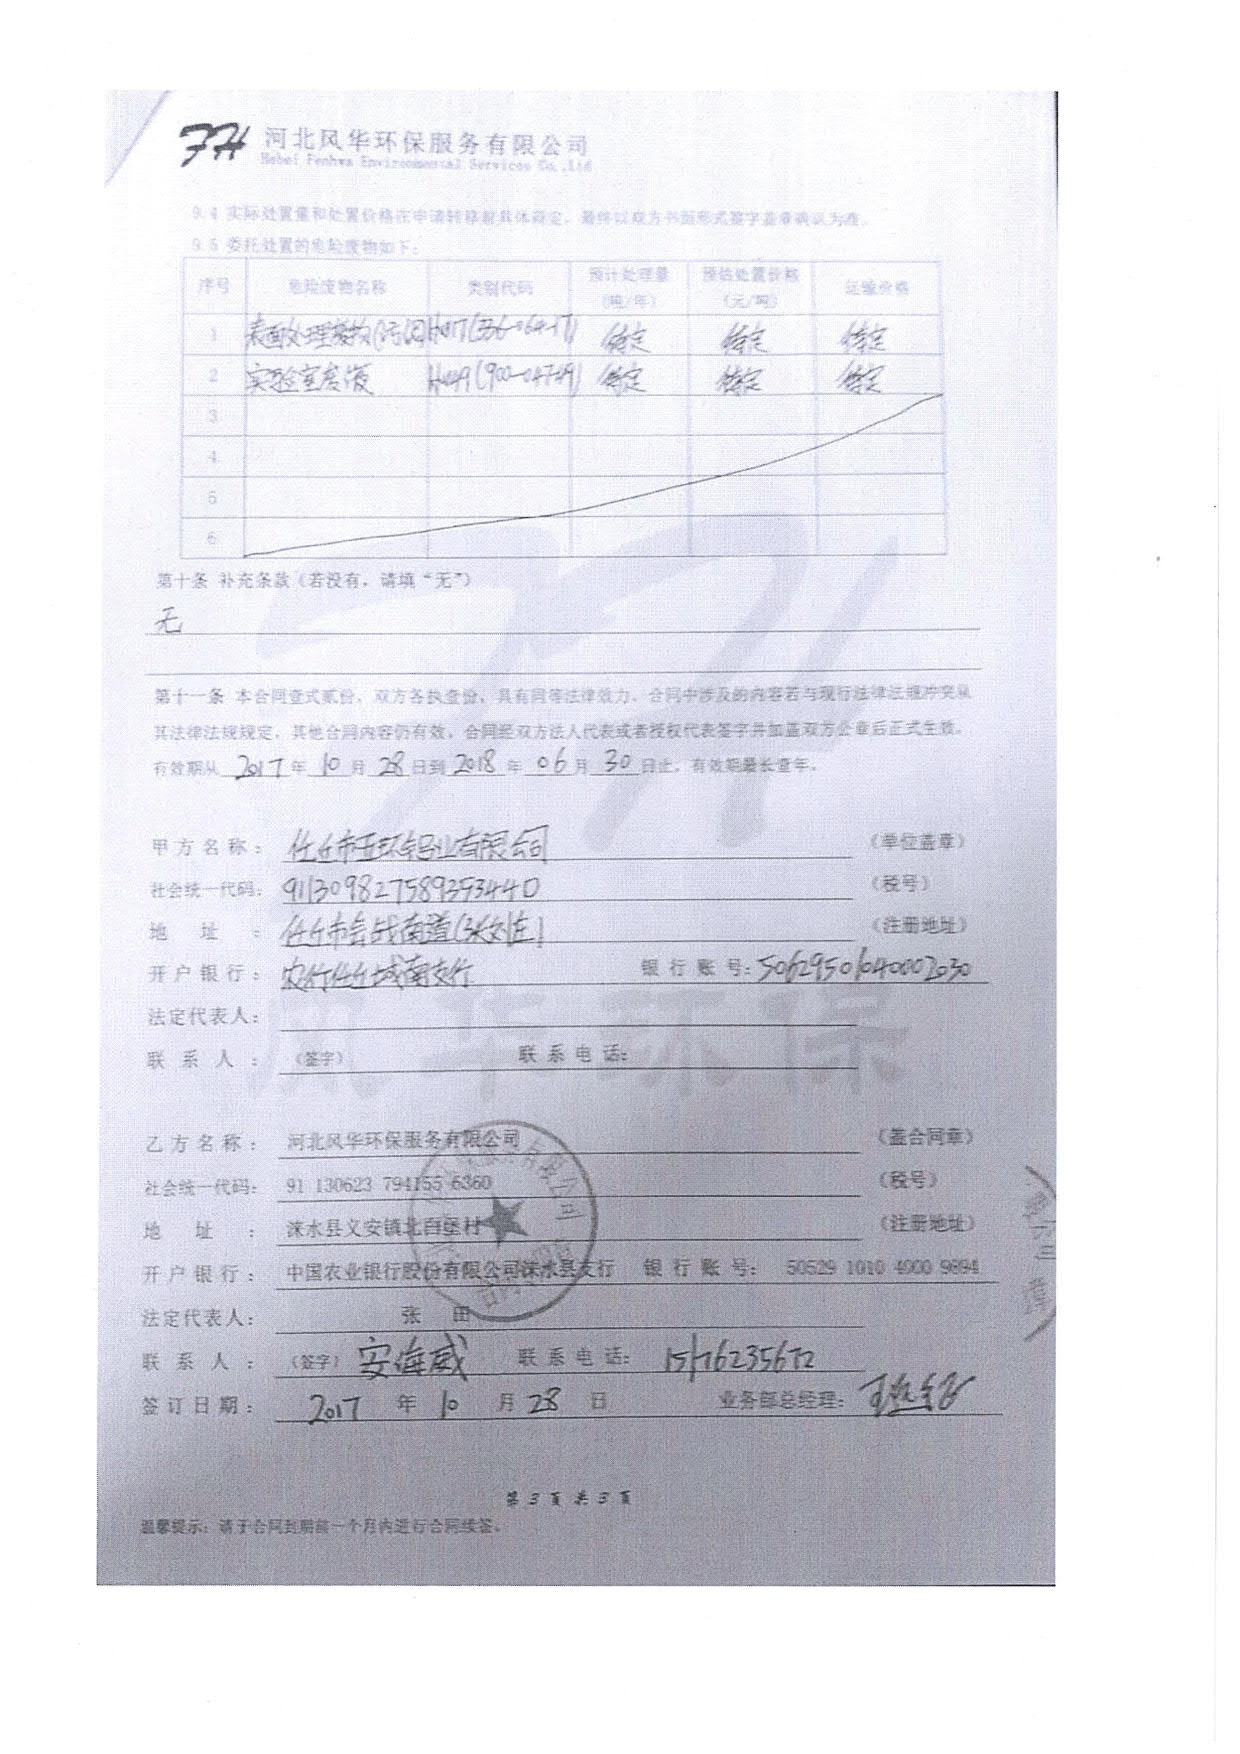 FH 河北风华环保服务有限公司
Hebei Fenhwa Environmental Services Co.,Ltd
9.4 实际处置量和处置价格在申请转移前具体商定，最终以双方书面形式签字盖章确认为准。
9.5 委托处置的危险废物如下：
序号 危险废物名称 类别代码 预计处理量（吨/年） 预估处置价格（元/吨） 运输价格
1 表面处理废物(污泥) HW17(336-064-17) 待定 待定 待定
2 实验室废液 HW49(900-047-49) 待定 待定 待定
3
4
5
6
第十条 补充条款（若没有，请填“无”）
无
第十一条 本合同壹式贰份，双方各执壹份，具有同等法律效力。合同中涉及的内容若与现行法律法规冲突从
其法律法规规定，其他合同内容仍有效。合同经双方法人代表或者授权代表签字并加盖双方公章后正式生效。
有效期从 2017 年 10 月 28 日到 2018 年 06 月 30 日止。有效期最长壹年。
甲方名称： 任丘市亚环铝业有限公司 （单位盖章）
社会统一代码： 91130982758935344D （税号）
地 址 ： 任丘市会战南道 （注册地址）
开户银行： 农行任丘城南支行 银行账号: 50629501040002030
法定代表人：
联 系 人 ： （签字） 联系电话:
乙方名称： 河北风华环保服务有限公司 （盖合同章）
社会统一代码： 91 130623 794155 6360 （税号）
地 址 ： 涞水县义安镇北白堡村 （注册地址）
开户银行： 中国农业银行股份有限公司涞水县支行 银行账号： 50529 1010 4000 9894
法定代表人： 张 田
联 系 人 ： （签字） 安海威 联系电话: 15176235672
签订日期： 2017 年 10 月 28 日 业务部总经理:
第 3 页 共 3 页
温馨提示：请于合同到期前一个月内进行合同续签。